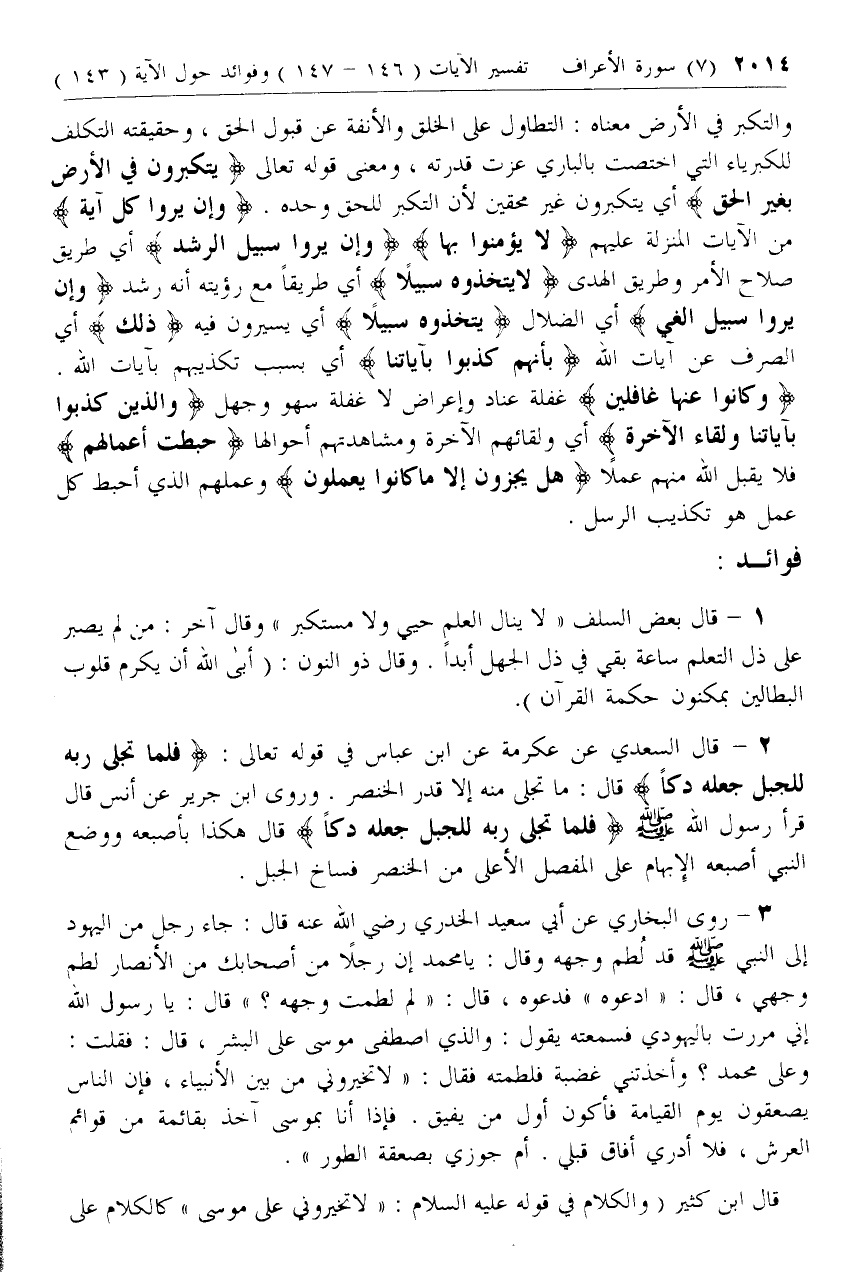 ٢٠١٤ (٧) سورة الأعراف تفسير الآيات ( ١٤٦ – ١٤٧ ) وفوائد حول الآية ( ١٤٣ )
والتكبر في الأرض معناه : التطاول على الخلق والأنفة عن قبول الحق ، وحقيقته التكلف
للكبرياء التي اختصت بالباري عزت قدرته ، ومعنى قوله تعالى ﴿ يتكبرون في الأرض
بغير الحق ﴾ أي يتكبرون غير محقين لأن التكبر للحق وحده . ﴿ وإن يروا كل آية ﴾
من الآيات المنزلة عليهم ﴿ لا يؤمنوا بها ﴾ ﴿ وإن يروا سبيل الرشد ﴾ أي طريق
صلاح الأمر وطريق الهدى ﴿ لايتخذوه سبيلًا ﴾ أي طريقاً مع رؤيته أنه رشد ﴿ وإن
يروا سبيل الغي ﴾ أي الضلال ﴿ يتخذوه سبيلًا ﴾ أي يسيرون فيه ﴿ ذلك ﴾ أي
الصرف عن آيات الله ﴿ بأنهم كذبوا بآياتنا ﴾ أي بسبب تكذيبهم بآيات الله .
﴿ وكانوا عنها غافلين ﴾ غفلة عناد وإعراض لا غفلة سهو وجهل ﴿ والذين كذبوا
بآياتنا ولقاء الآخرة ﴾ أي ولقائهم الآخرة ومشاهدتهم أحوالها ﴿ حبطت أعمالهم ﴾
فلا يقبل الله منهم عملًا ﴿ هل يجزون إلا ماكانوا يعملون ﴾ وعملهم الذي أحبط كل
عمل هو تكذيب الرسل .
فوائـــد :
١ – قال بعض السلف « لا ينال العلم حيي ولا مستكبر » وقال آخر : من لم يصبر
على ذل التعلم ساعة بقي في ذل الجهل أبداً . وقال ذو النون : ( أبىٰ الله أن يكرم قلوب
البطالين بمكنون حكمة القرآن ).
٢ – قال السعدي عن عكرمة عن ابن عباس في قوله تعالى : ﴿ فلما تجلى ربه
للجبل جعله دكاً ﴾ قال : ما تجلى منه إلا قدر الخنصر . وروى ابن جرير عن أنس قال
قرأ رسول الله ﷺ ﴿ فلما تجلى ربه للجبل جعله دكاً ﴾ قال هكذا بأصبعه ووضع
النبي أصبعه الإبهام على المفصل الأعلى من الخنصر فساخ الجبل .
٣ – روى البخاري عن أبي سعيد الخدري رضي الله عنه قال : جاء رجل من اليهود
إلى النبي ﷺ قد لُطم وجهه وقال : يامحمد إن رجلًا من أصحابك من الأنصار لطم
وجهي ، قال : « ادعوه » فدعوه ، قال : « لم لطمت وجهه ؟ » قال : يا رسول الله
إني مررت باليهودي فسمعته يقول : والذي اصطفى موسى على البشر ، قال : فقلت :
وعلى محمد ؟ وأخذتني غضبة فلطمته فقال : « لاتخيروني من بين الأنبياء ، فإن الناس
يصعقون يوم القيامة فأكون أول من يفيق . فإذا أنا بموسى آخذ بقائمة من قوائم
العرش ، فلا أدري أفاق قبلي . أم جوزي بصعقة الطور » .
قال ابن كثير ( والكلام في قوله عليه السلام : « لاتخيروني على موسى » كالكلام على